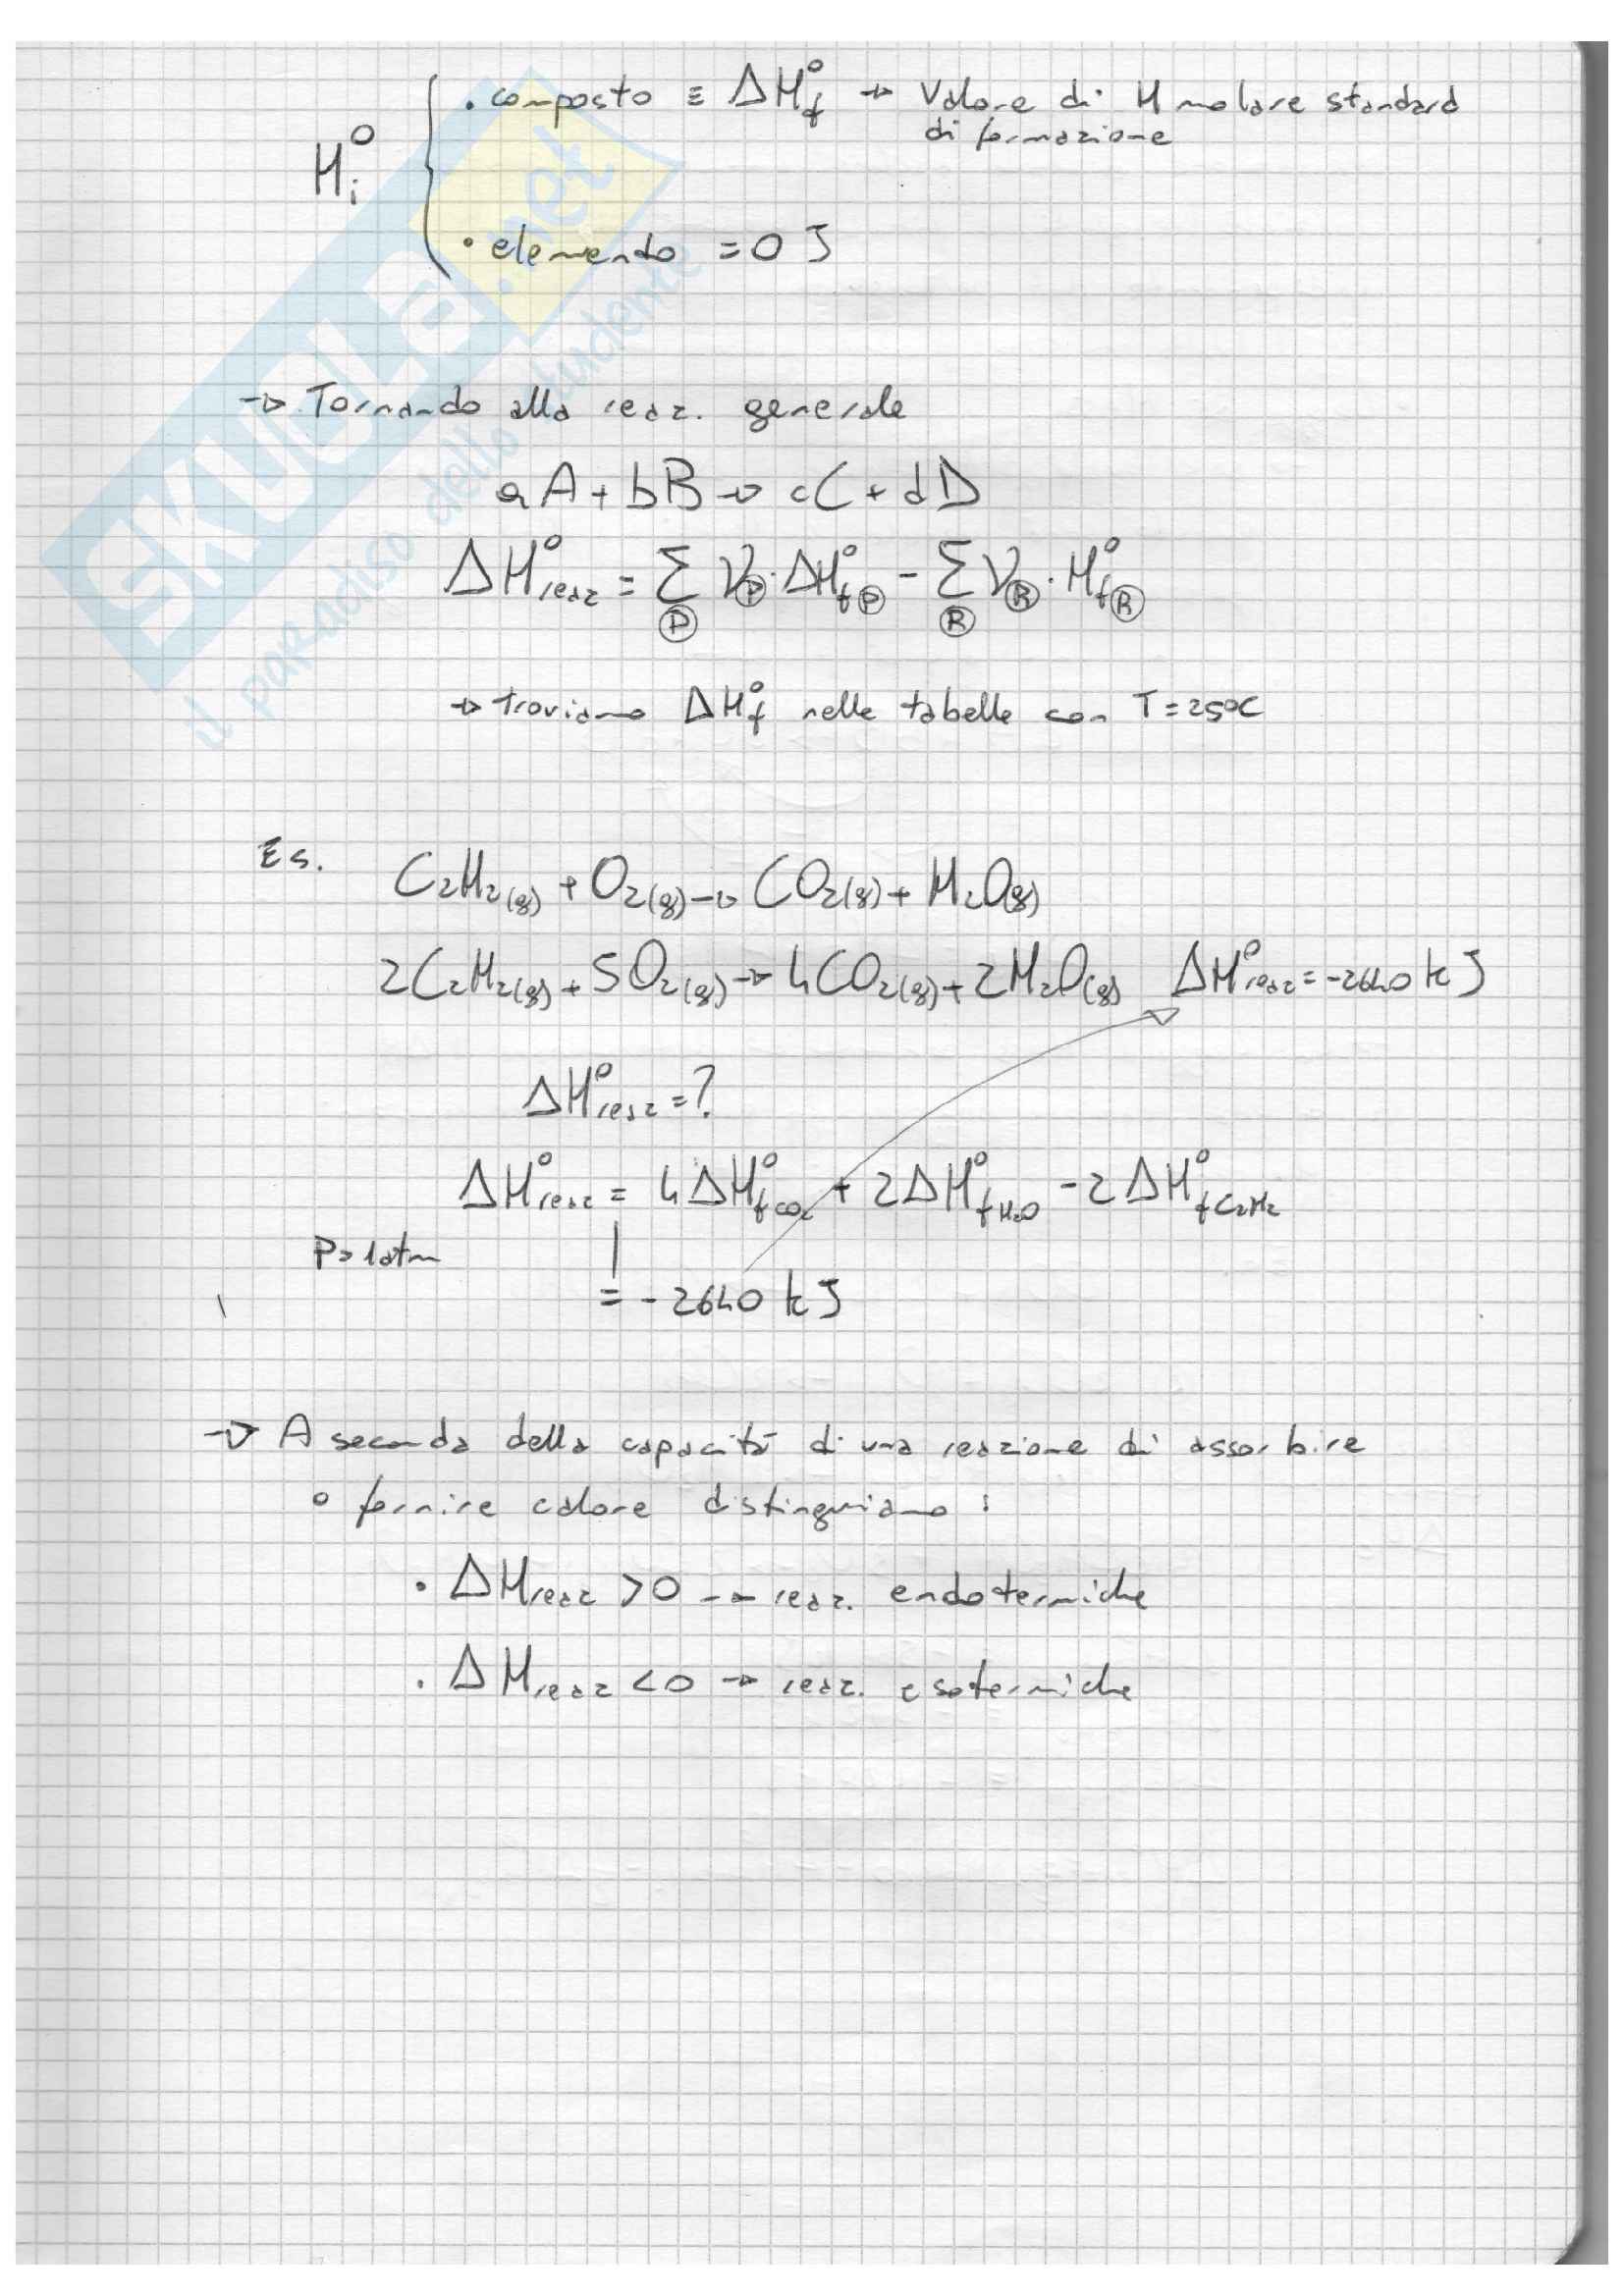 H°i { • composto ≡ ΔH°f → Valore di H molare standard
di formazione
• elemento = 0 J
→ Tornando alla reaz. generale
aA + bB → cC + dD
ΔH°reaz = Σ(P) ν(P) · ΔH°f(P) - Σ(R) ν(R) · H°f(R)
→ Troviamo ΔH°f nelle tabelle con T = 25°C
Es.
C2H2(g) + O2(g) → CO2(g) + H2O(g)
2C2H2(g) + 5O2(g) → 4CO2(g) + 2H2O(g) ΔH°reaz = -2640 kJ
ΔH°reaz = ?
ΔH°reaz = 4ΔH°fCO2 + 2ΔH°fH2O - 2ΔH°fC2H2
P=1atm
= -2640 kJ
→ A seconda della capacità di una reazione di assorbire
o fornire calore distinguiamo:
• ΔHreaz > 0 → reaz. endotermiche
• ΔHreaz < 0 → reaz. esotermiche
SKUOLA.net
il paradiso dello studente